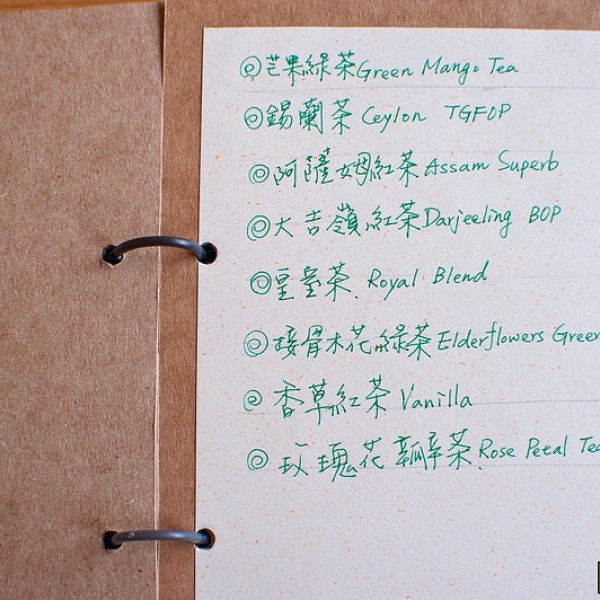 ◎芒果綠茶Green Mango Tea
◎錫蘭茶 Ceylon TGFOP
◎阿薩姆紅茶Assam Superb
◎大吉嶺紅茶Darjeeling BOP
◎皇室茶 Royal Blend
◎接骨木花綠茶Elderflowers Green
◎香草紅茶 Vanilla
◎玫瑰花瓣茶 Rose Petal Tea